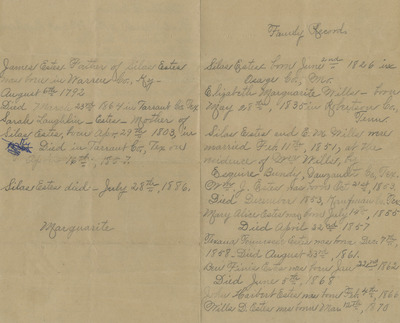 James Estes Father of Silas Estes
was born in Warren Co, Ky—
August 6th 1792
Died March 25th 1864 in Tarrant Co, Tex
Sarah Laughlin – Estes – Mother of
Silas Estes, born Apr 29th 1803, in
Died in Tarrant Co, Tex on
18th, 1857.
Silas Estes died – July 28th, 1896.
Marguarite
Family Record
Silas Estes born June 2nd 1826 in
Osage Co, Mo.
Elizabeth Marguarite Mills – born
May 28th, 1835 in Robertson Co,
Tenn
Silas Estes and E. M. Mills were
married Feb 11th, 1851, at the
residence of Mills, by
Esquire Bundy, Co, Tex.
J. Estes was born Oct 2nd 1852
Died December 1853, Kaufman Co Tex
Mary Alice Estes was born July 1855
Died April 22nd 1857
Texana Estes was born Dec 7th,
1858 – Died August 25th, 1861.
Ben Estes was born Jan 22nd 1862
Died June 5th, 1868
John Herbert Estes was born Feb 4th, 1866
Mills D. Estes was born Mar 1870